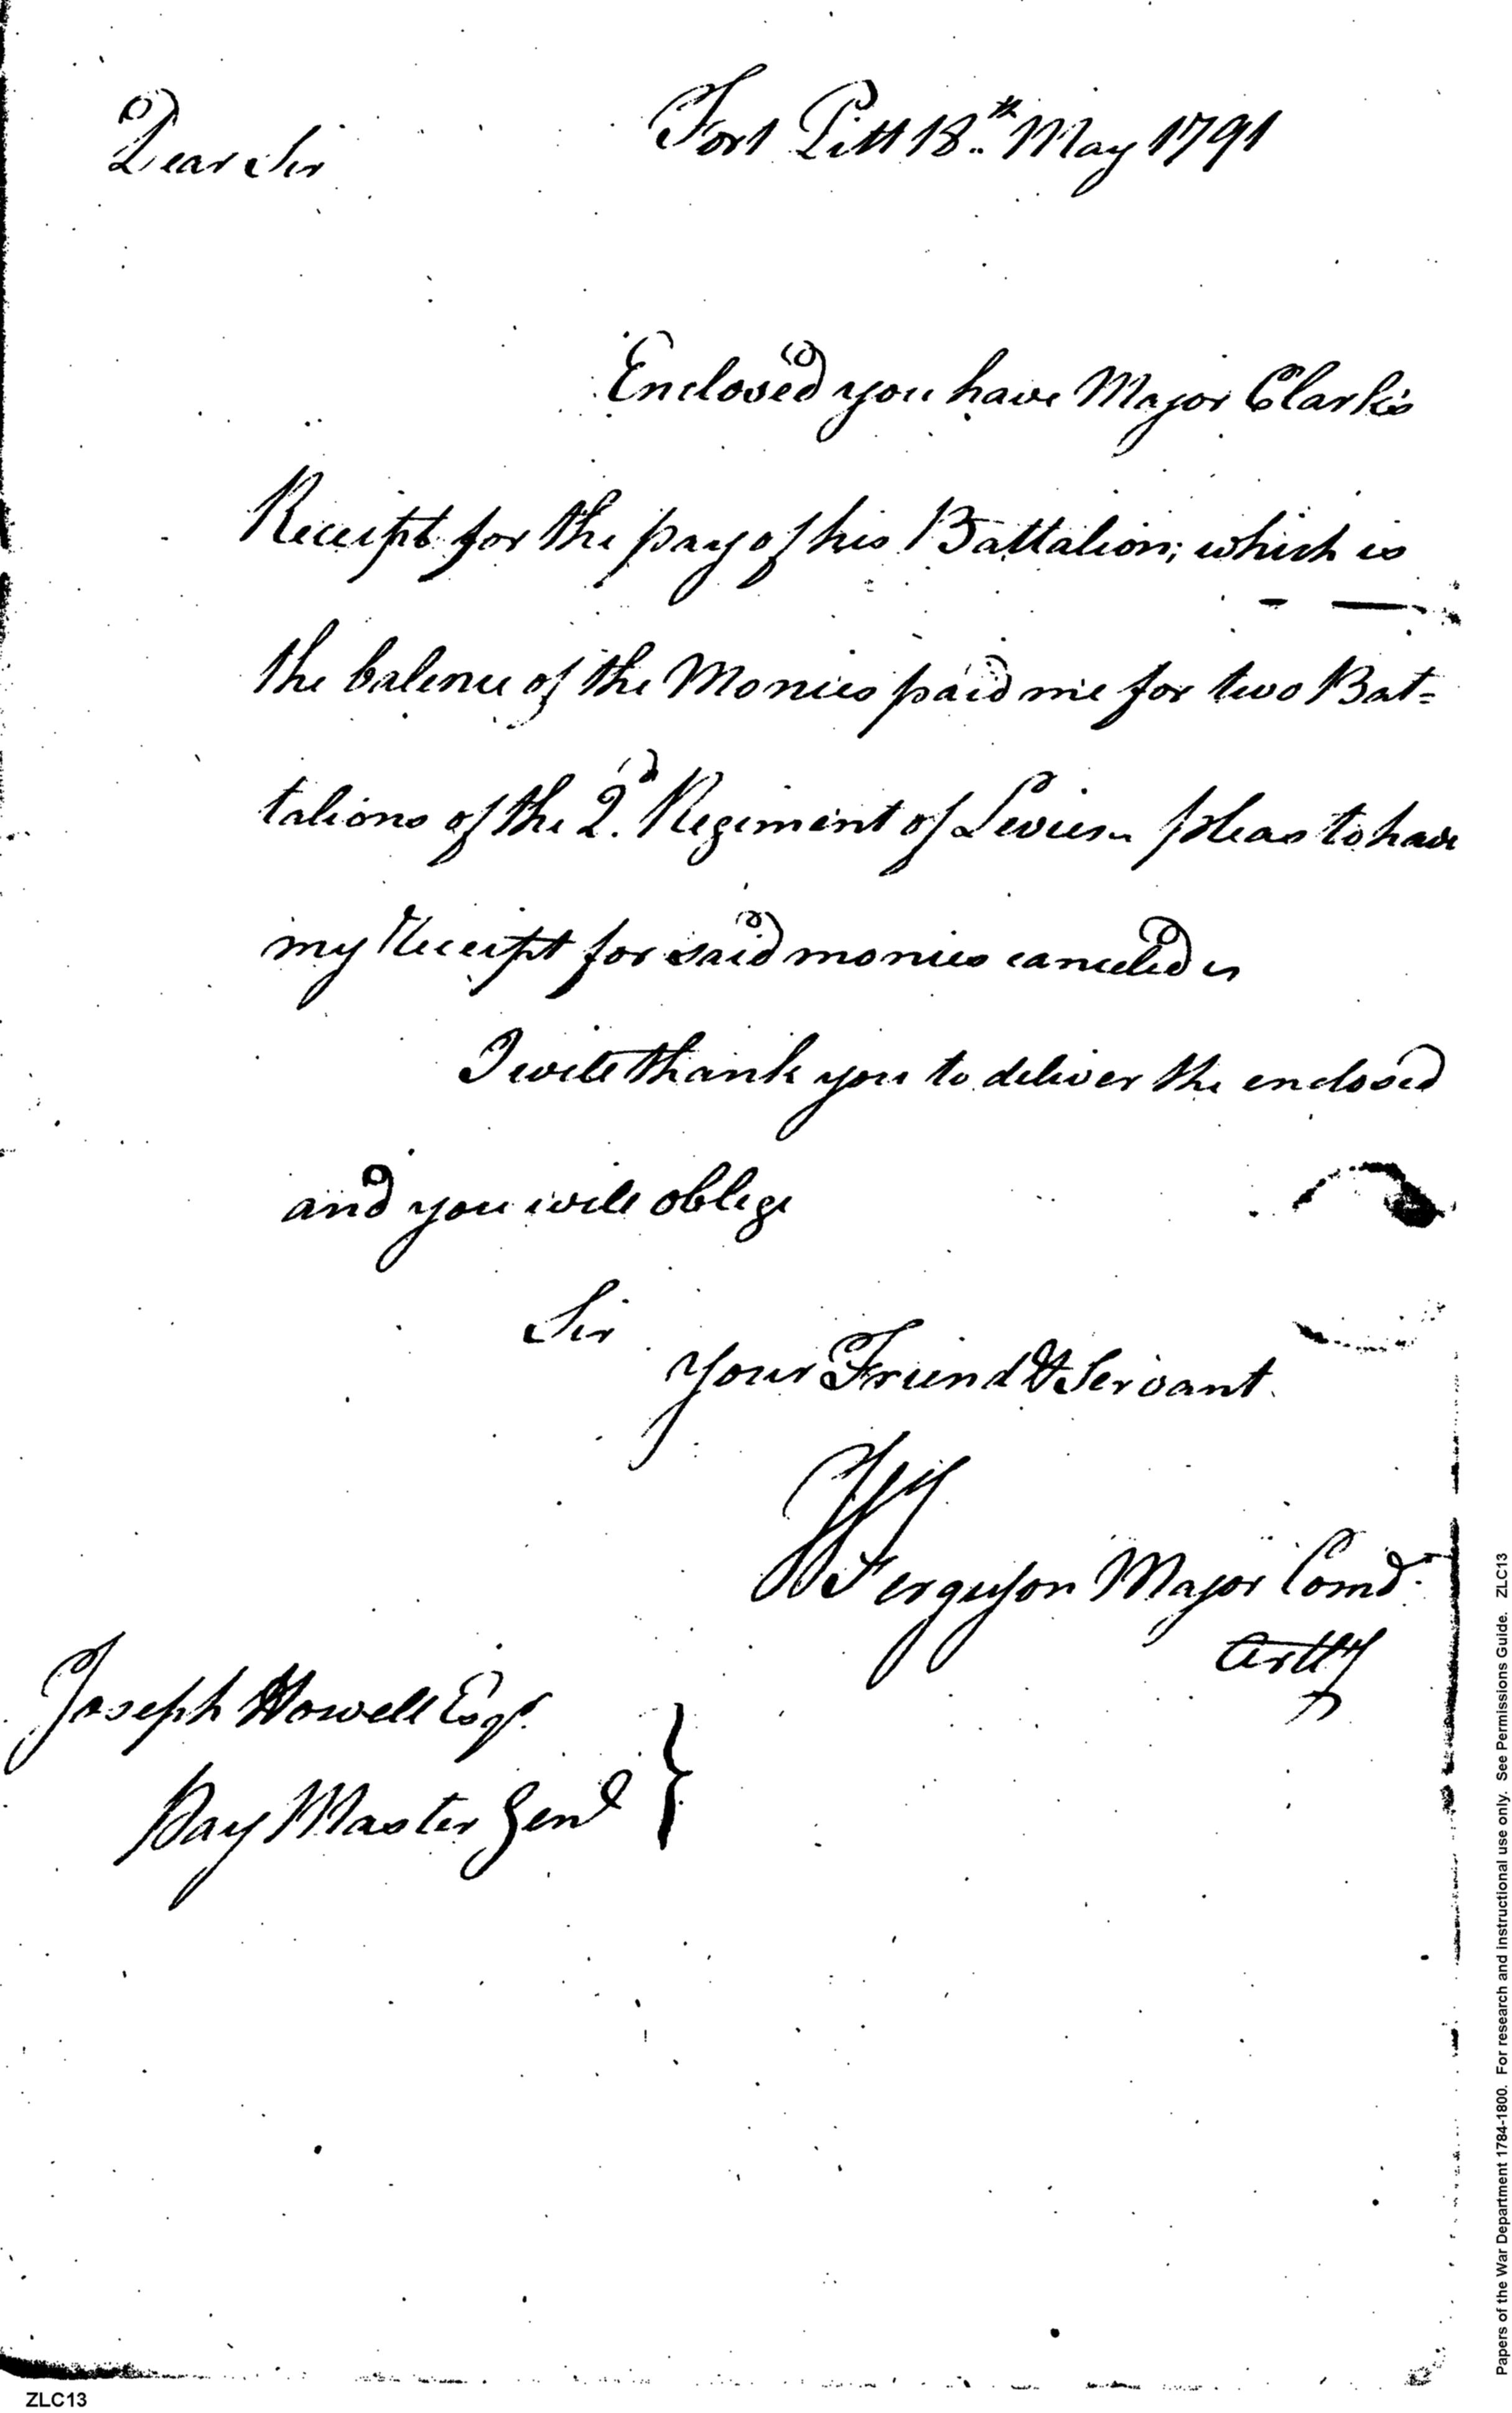 Fort Pitt 18th May 1791
Dear Sir
Enclosed you have Major Clark's
Receipt for the pay of his Battalion; which is
the balence of the Monies paid me for two Bat=
talions of the 2d. Regiment of Levies pleas to have
my Receipt for said monies canceled
I will thank you to deliver the enclosed
and you will oblege
Sir
your Friend & Servant
Wm Ferguson Major Comd.
Artty
Joseph Howell Esqr.
Pay Master Genl }
ZLC13
Papers of the War Department 1784-1800. For research and instructional use only. See Permissions Guide. ZLC13